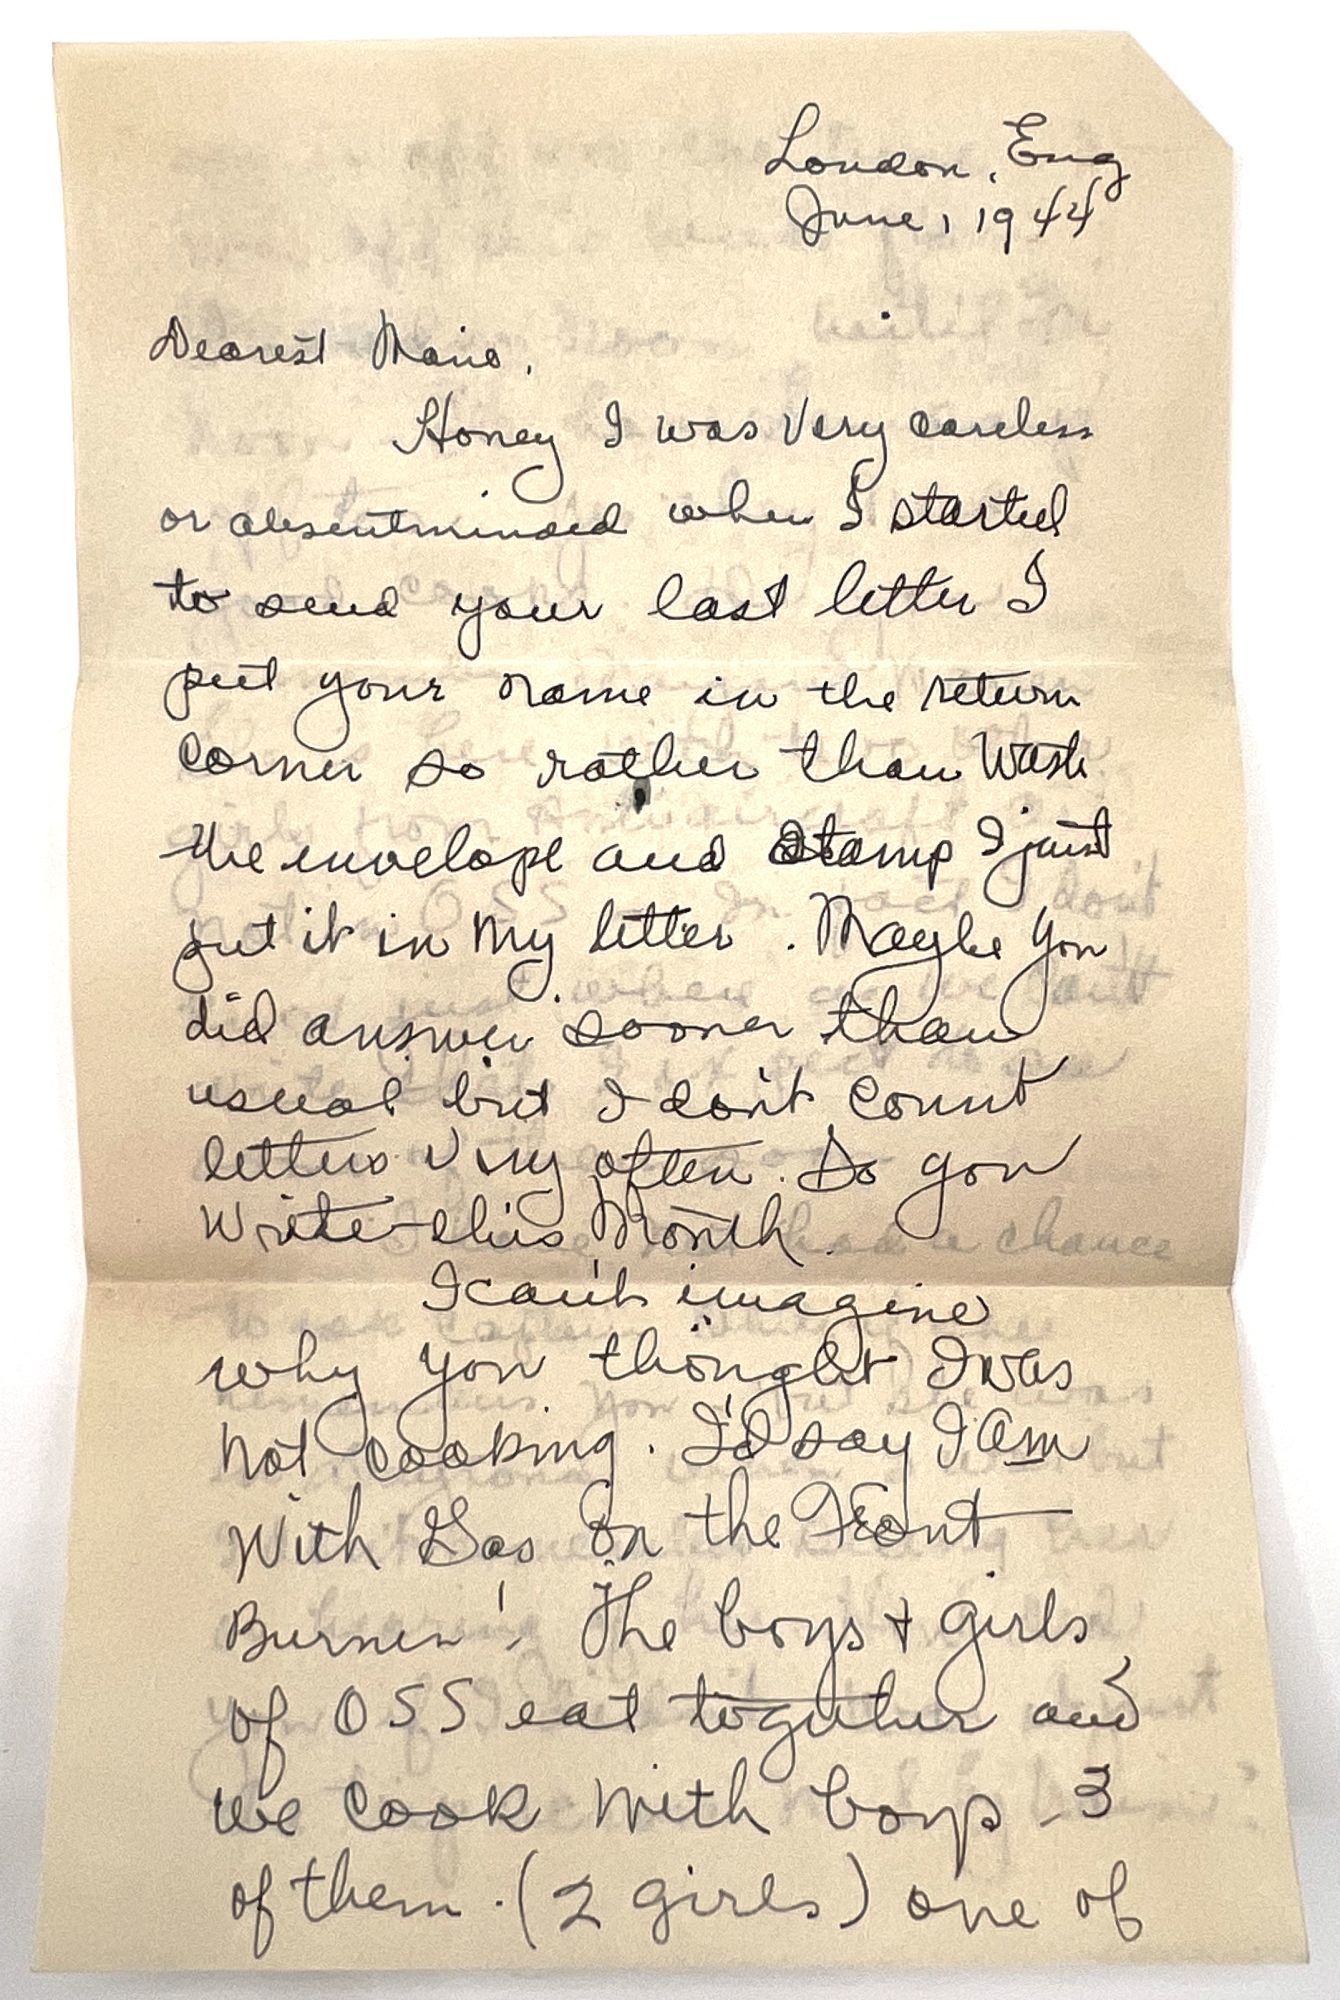 London, Eng
June, 1944
Dearest Marie,
Honey I was very careless
or absentminded when I started
to send your last letter I
put your name in the return
corner so rather than Wash
the envelope and stamp I just
put it in my letter. Maybe you
did answer sooner than
usual but I don't count
letters very often. So you
write this month.
I can't imagine
why you thought I was
not cooking. I'd say I am
With Gas on the Front
Burner! The boys + girls
of OSS eat together and
we cook with boys - 3
of them. (2 girls) one of